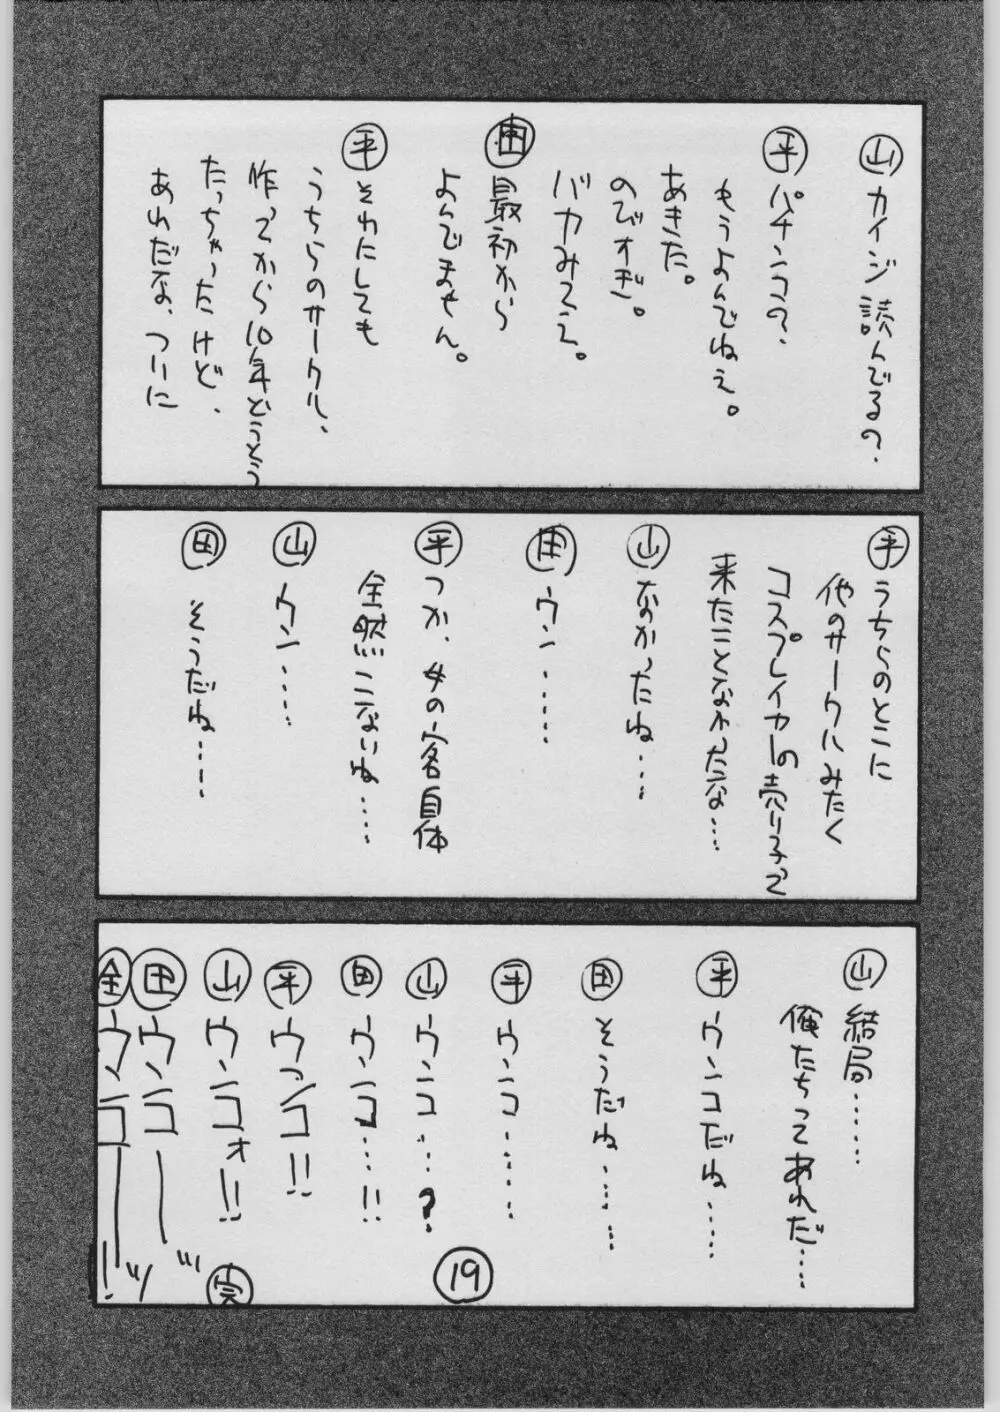 山 カイジ読んでるの?
平 パチンコの?
もうよんでねえ。
あきた。
のびすぎ。
バカみてえ。
田 最初から
よんでません。
平 それにしても
うちらのサークル、
作ってから10年とうとう
たっちゃったけど、
あれだな、ついに
平 うちらのとこに
他のサークルみたく
コスプレイヤーの売り子って
来たことなかったな…
山 なかったね……
田 ウン……
平 つか、女の客自体
全然こないね……
山 ウン……
田 そうだね……
山 結局……
俺たちってあれだ……
平 ウンコだね……
田 そうだね……
平 ウンコ……
山 ウンコ…?
田 ウンコ…!!
平 ウンコ!!
山 ウンコォ!!
田 ウンコ――ッ
全 ウンコ――ッ!
完
19